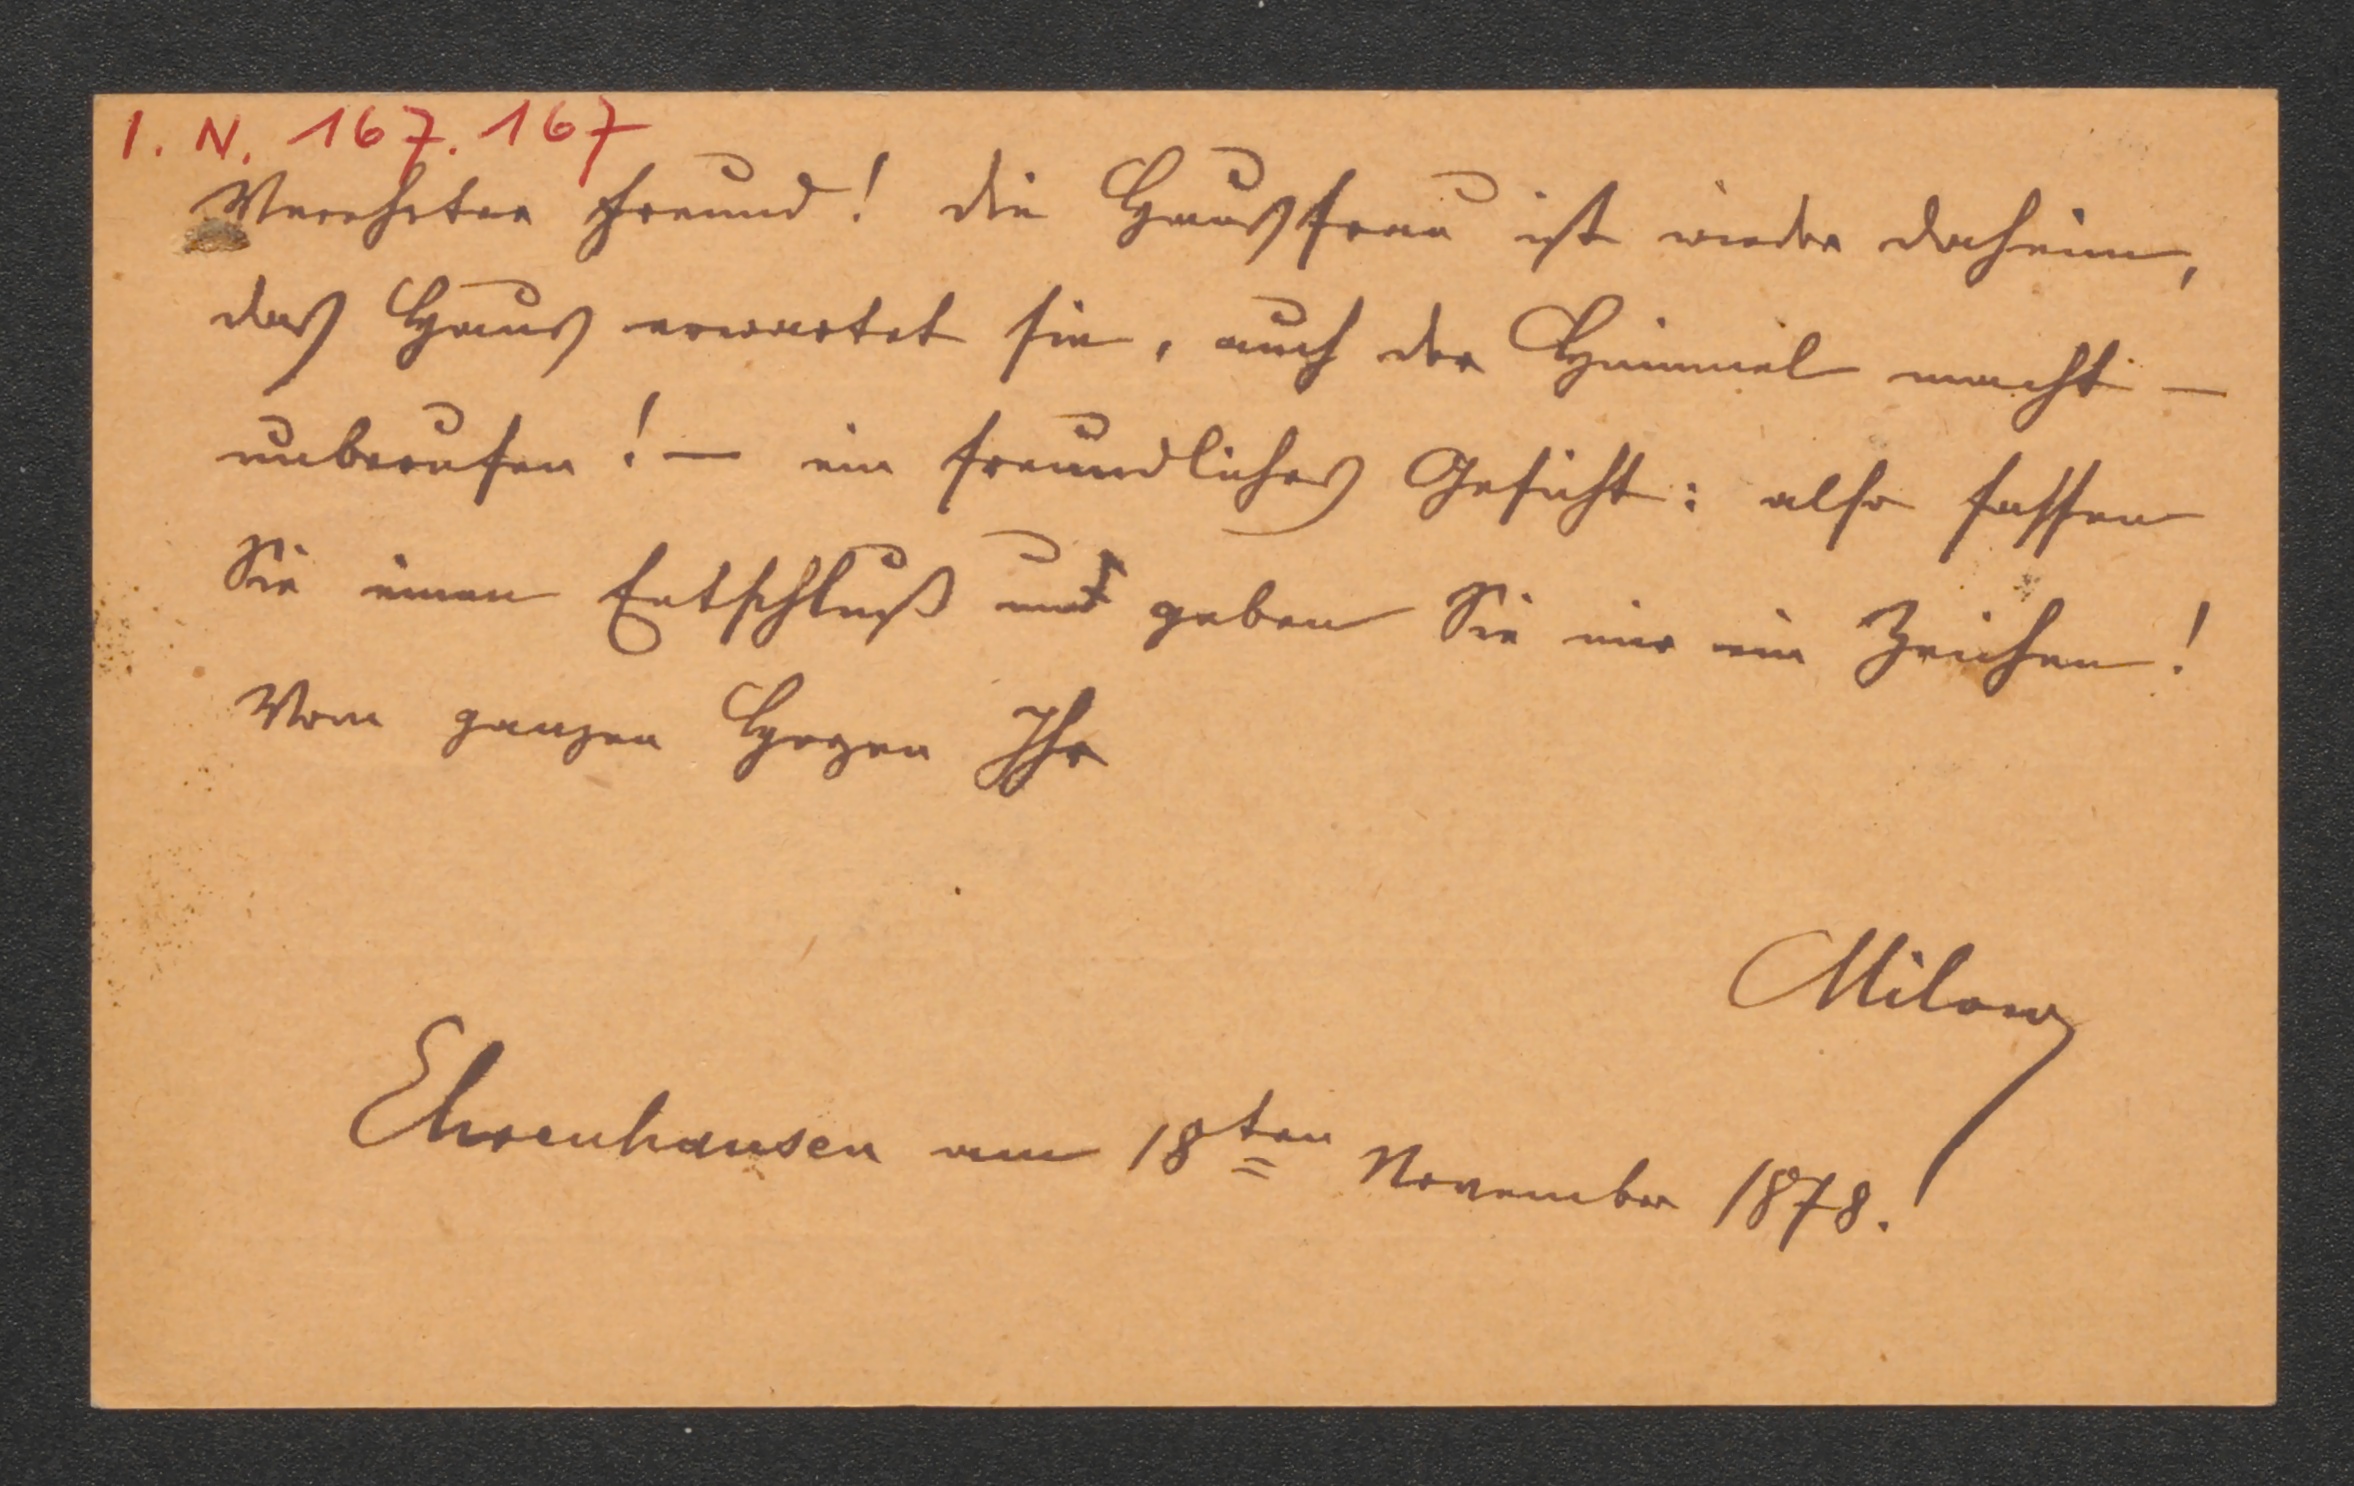 I. N. 167.167
Verehrter Freund! die Hausfrau ist wieder daheim,
das Haus erwartet sie, auch der Himmel macht —
unberufen! — ein freundliches Gesicht: also fassen
Sie einen Entschluß und geben Sie mir ein Zeichen!
Vom ganzen Herzen Ihr
Milow
Ehrenhausen am 18ten November 1878.